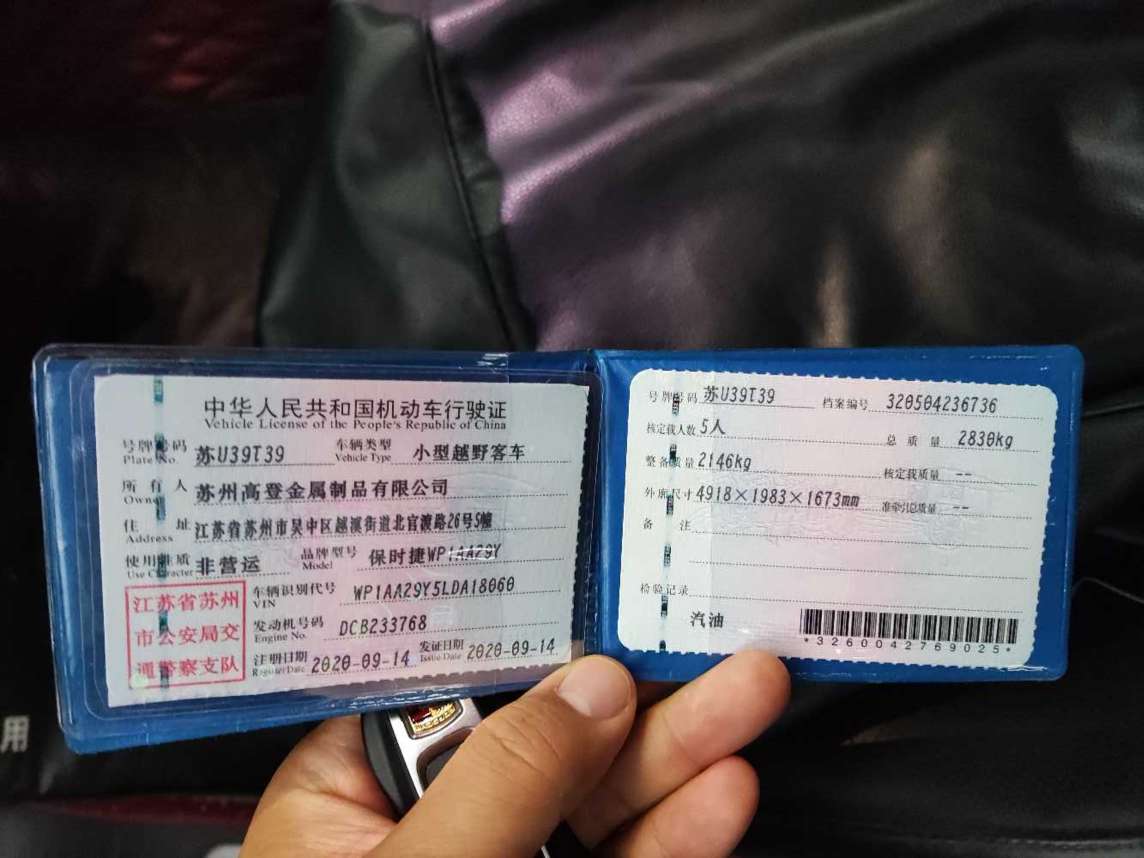 中华人民共和国机动车行驶证
Vehicle License of the People's Republic of China
号牌号码 苏U39T39 车辆类型 小型越野客车
Plate No. Vehicle Type
所有人 苏州高登金属制品有限公司
Owner
住址 江苏省苏州市吴中区越溪街道北官渡路26号5幢
Address
使用性质 非营运 品牌型号 保时捷WP1AA29Y
Use Character Model
江苏省苏州
市公安局交
通警察支队
车辆识别代号 WP1AA29Y5LDA18060
VIN
发动机号码 DCB233768
Engine No.
注册日期 2020-09-14 发证日期 2020-09-14
Register Date Issue Date
号牌号码 苏U39T39 档案编号 320504236736
核定载人数 5人 总质量 2830kg
整备质量 2146kg 核定载质量 --
外廓尺寸 4918×1983×1673mm 准牵引总质量 --
备注
检验记录
汽油
*3260042769025*
用